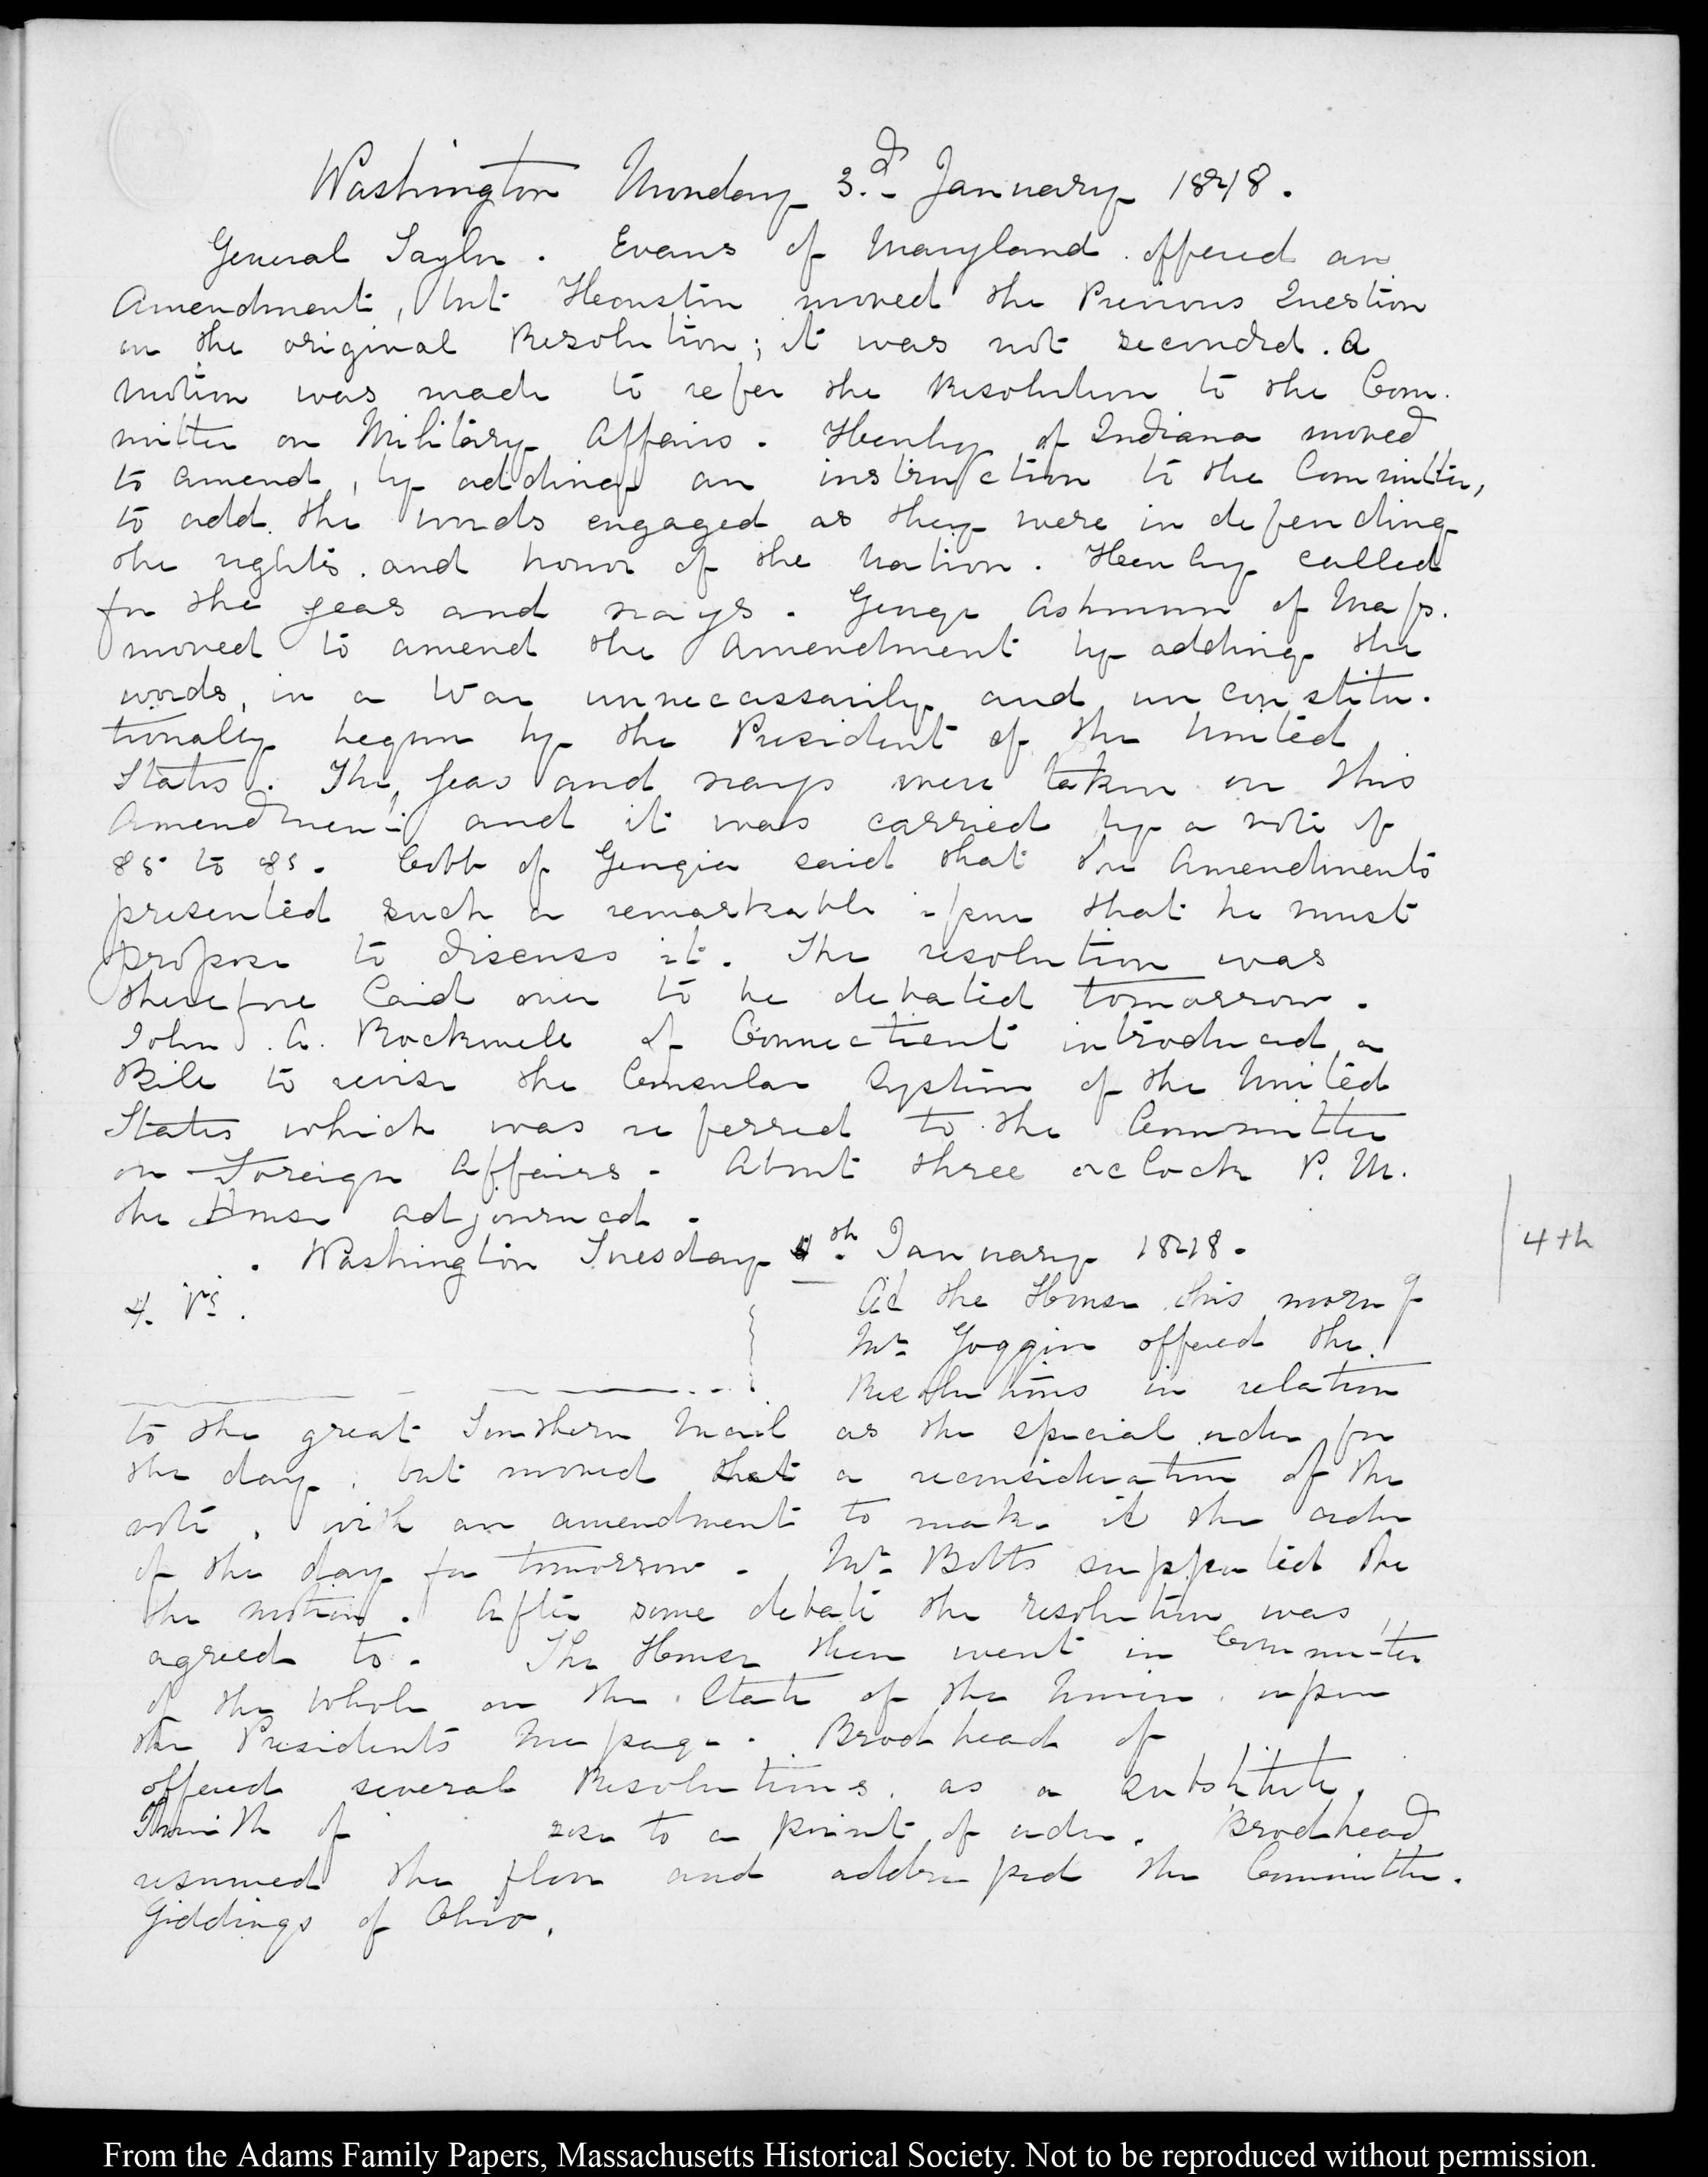 Washington Monday 3.d January 1848.
General Taylor. Evans of Maryland offered an
Amendment, but Heouston moved the Previous Question
on the original Resolution; it was not seconded. A
motion was made to refer the Resolution to the Com.
mittee on Military Affairs. Henley of Indiana moved
to amend, by adding an instruction to the Committee,
to add the words engaged as they were in defending
the rights and honor of the Nation. Henley called
for the yeas and nays. George Ashmun of Mass.
moved to amend the Amendment by adding the
words, in a War unnecassarily and unconstitu.
tionally begun by the President of the United
States. The yeas and nays were taken on this
Amendment and it was carried by a vote of
85 to 81. Cobb of Georgia said that the Amendments
presented such a remarkable issue that he must
propose to discuss it. The resolution was
therefore laid over to be debated tomorrow.
John A. Rockwell of Connecticut introduced a
Bill to revise the Consular System of the United
States which was referred to the Committee
on Foreign Affairs. About three oclock P.M.
the House adjourned.
Washington Tuesday 4th January 1848.
4th
4. V:
At the House this morng
Mr Goggin offered the
Resolutions in relation
to the great Southern Mail as the special order for
the day, but moved that a reconsideration of the
vote, with an amendment to make it the order
of the day for tomorrow. Mr Botts supported the
the motion. After some debate the resolution was
agreed to. The House then went in Committee
of the Whole on the State of the Union upon
the Presidents Message. Brodhead of
offered several Resolutions as a substitute.
of rose to a point of order. Brodhead
resumed the floor and addressed the Committee.
Giddings of Ohio.
From the Adams Family Papers, Massachusetts Historical Society. Not to be reproduced without permission.